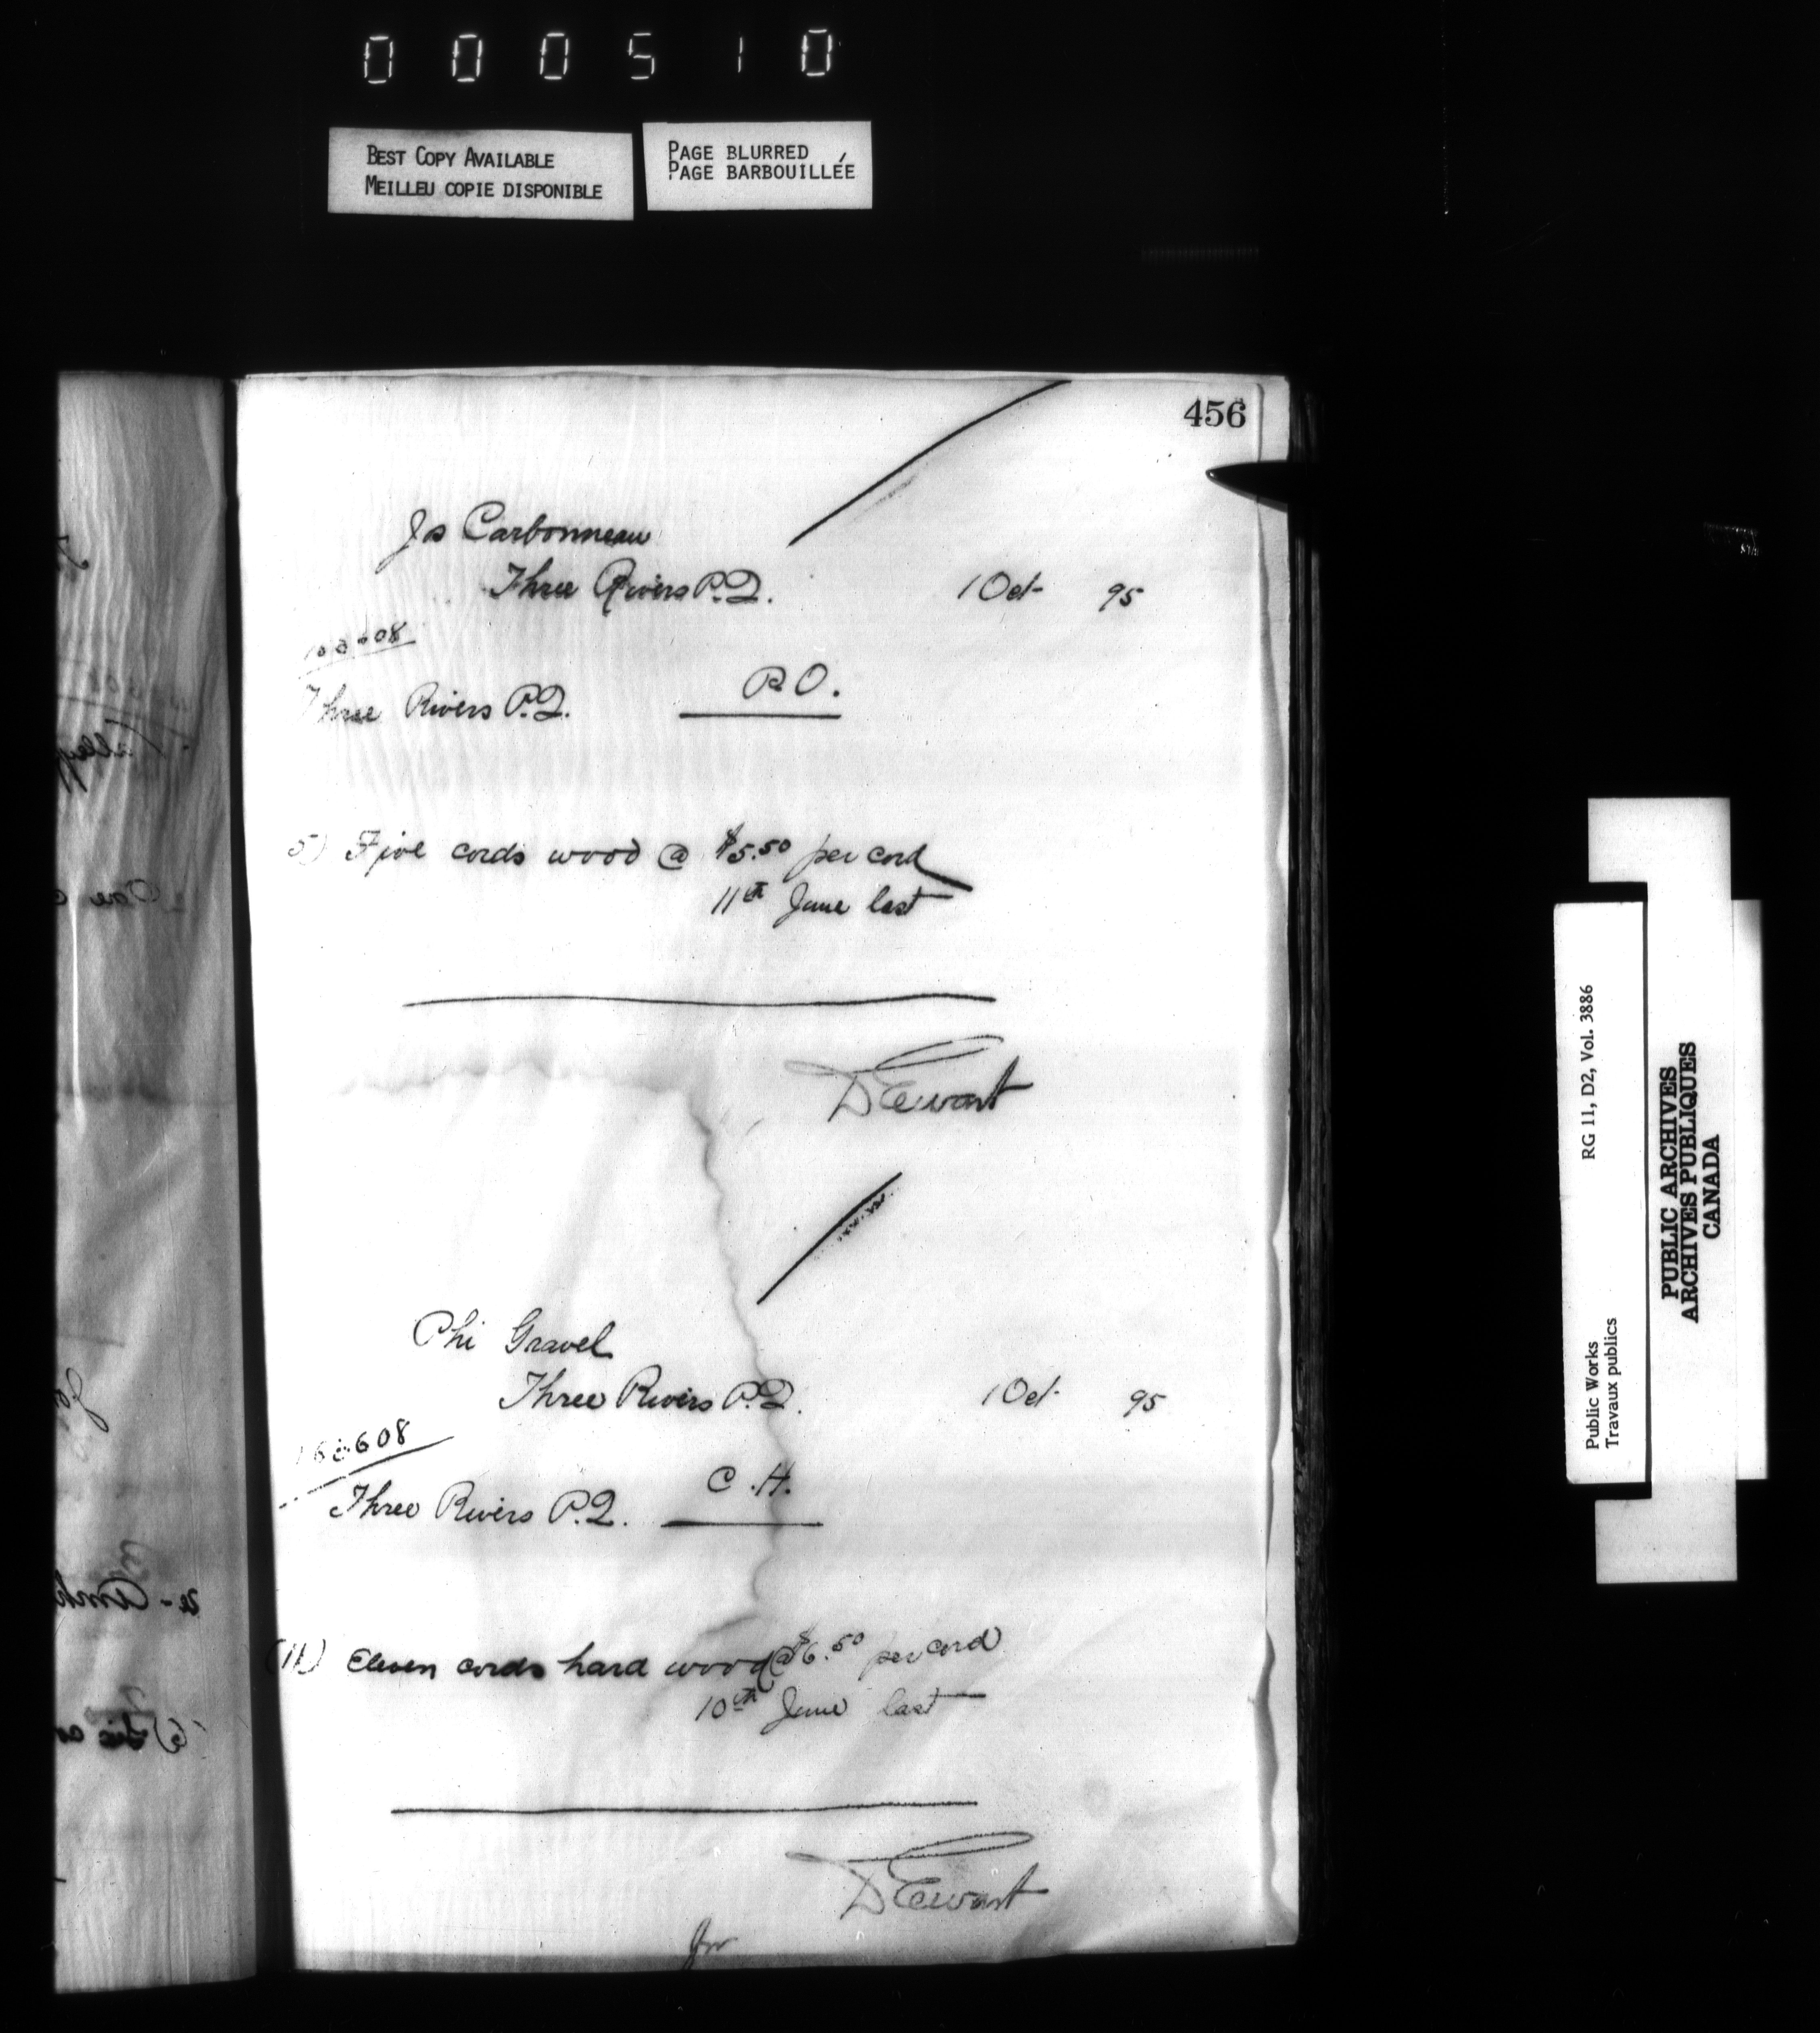 000510
BEST COPY AVAILABLE
MEILLEU COPIE DISPONIBLE
PAGE BLURRED
PAGE BARBOUILLÉE
456
Js Carbonneau
Three Rivers P.Q. 1 Oct 95
608
Three Rivers P.Q. P.O.
5) Five cords wood @ $5.50 per cord
11th June last
DEwart
Phi Gravel
Three Rivers P.Q. 1 Oct 95
608
Three Rivers P.Q. C.H.
(11) Eleven cords hard wood @ $6.50 per cord
10th June last
DEwart
RG 11, D2, Vol. 3886
Public Works
Travaux publics
PUBLIC ARCHIVES
ARCHIVES PUBLIQUES
CANADA